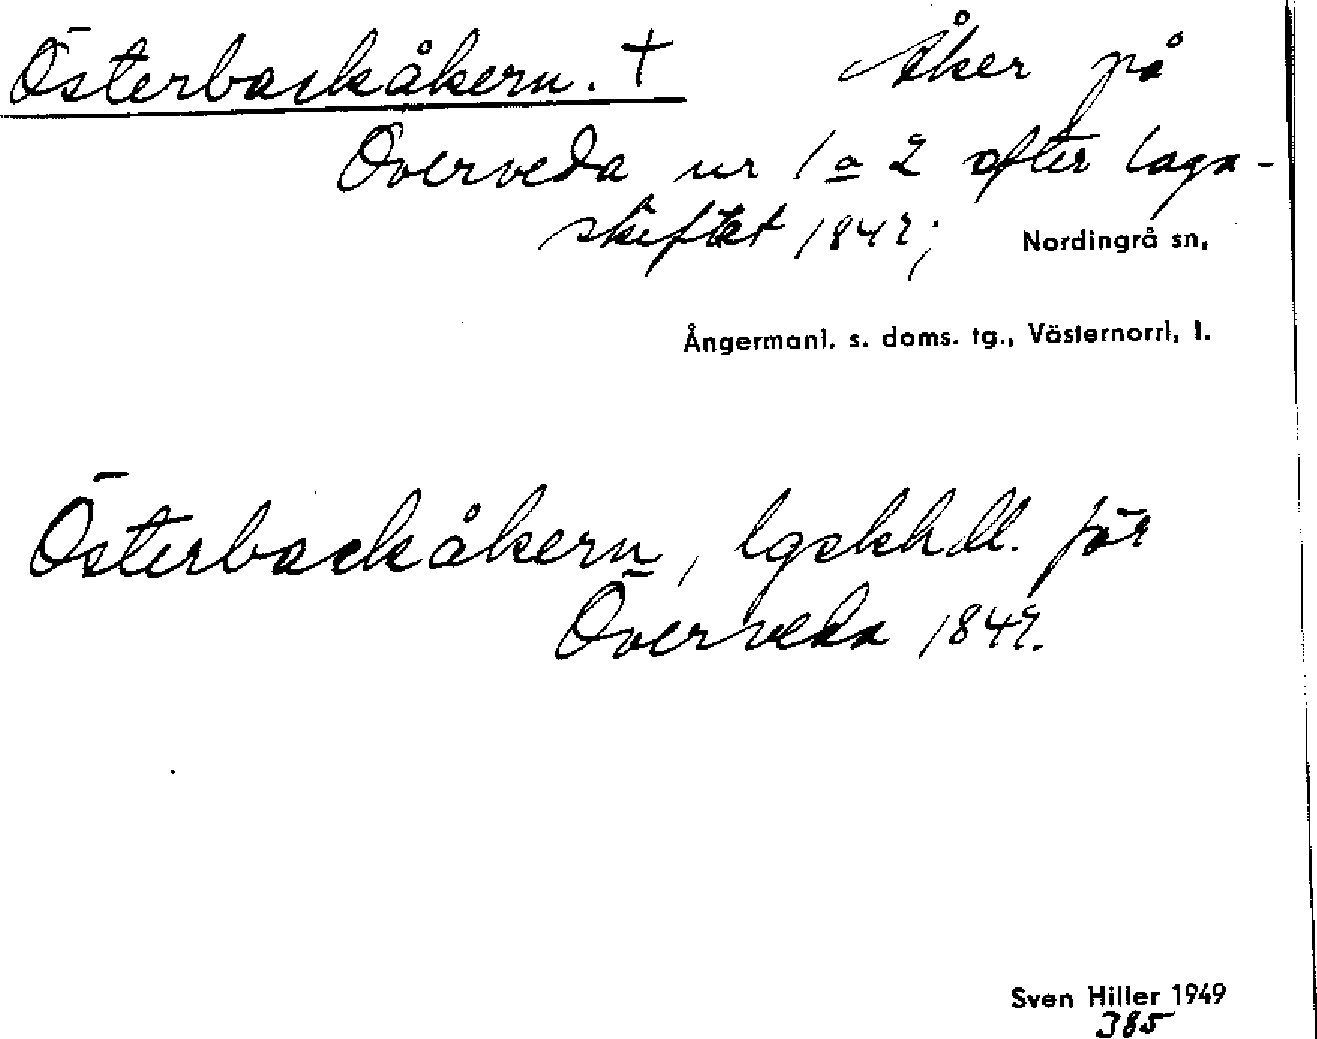 Österbackåkern. † Åker på
Överveda nr 1 o 2 efter laga-
skiftet 1842; Nordingrå sn,
Ångermanl. s. doms. tg., Västernorrl, l.
Österbackåkern, lgskhdl. för
Överveda 1842.
Sven Hiller 1949
385